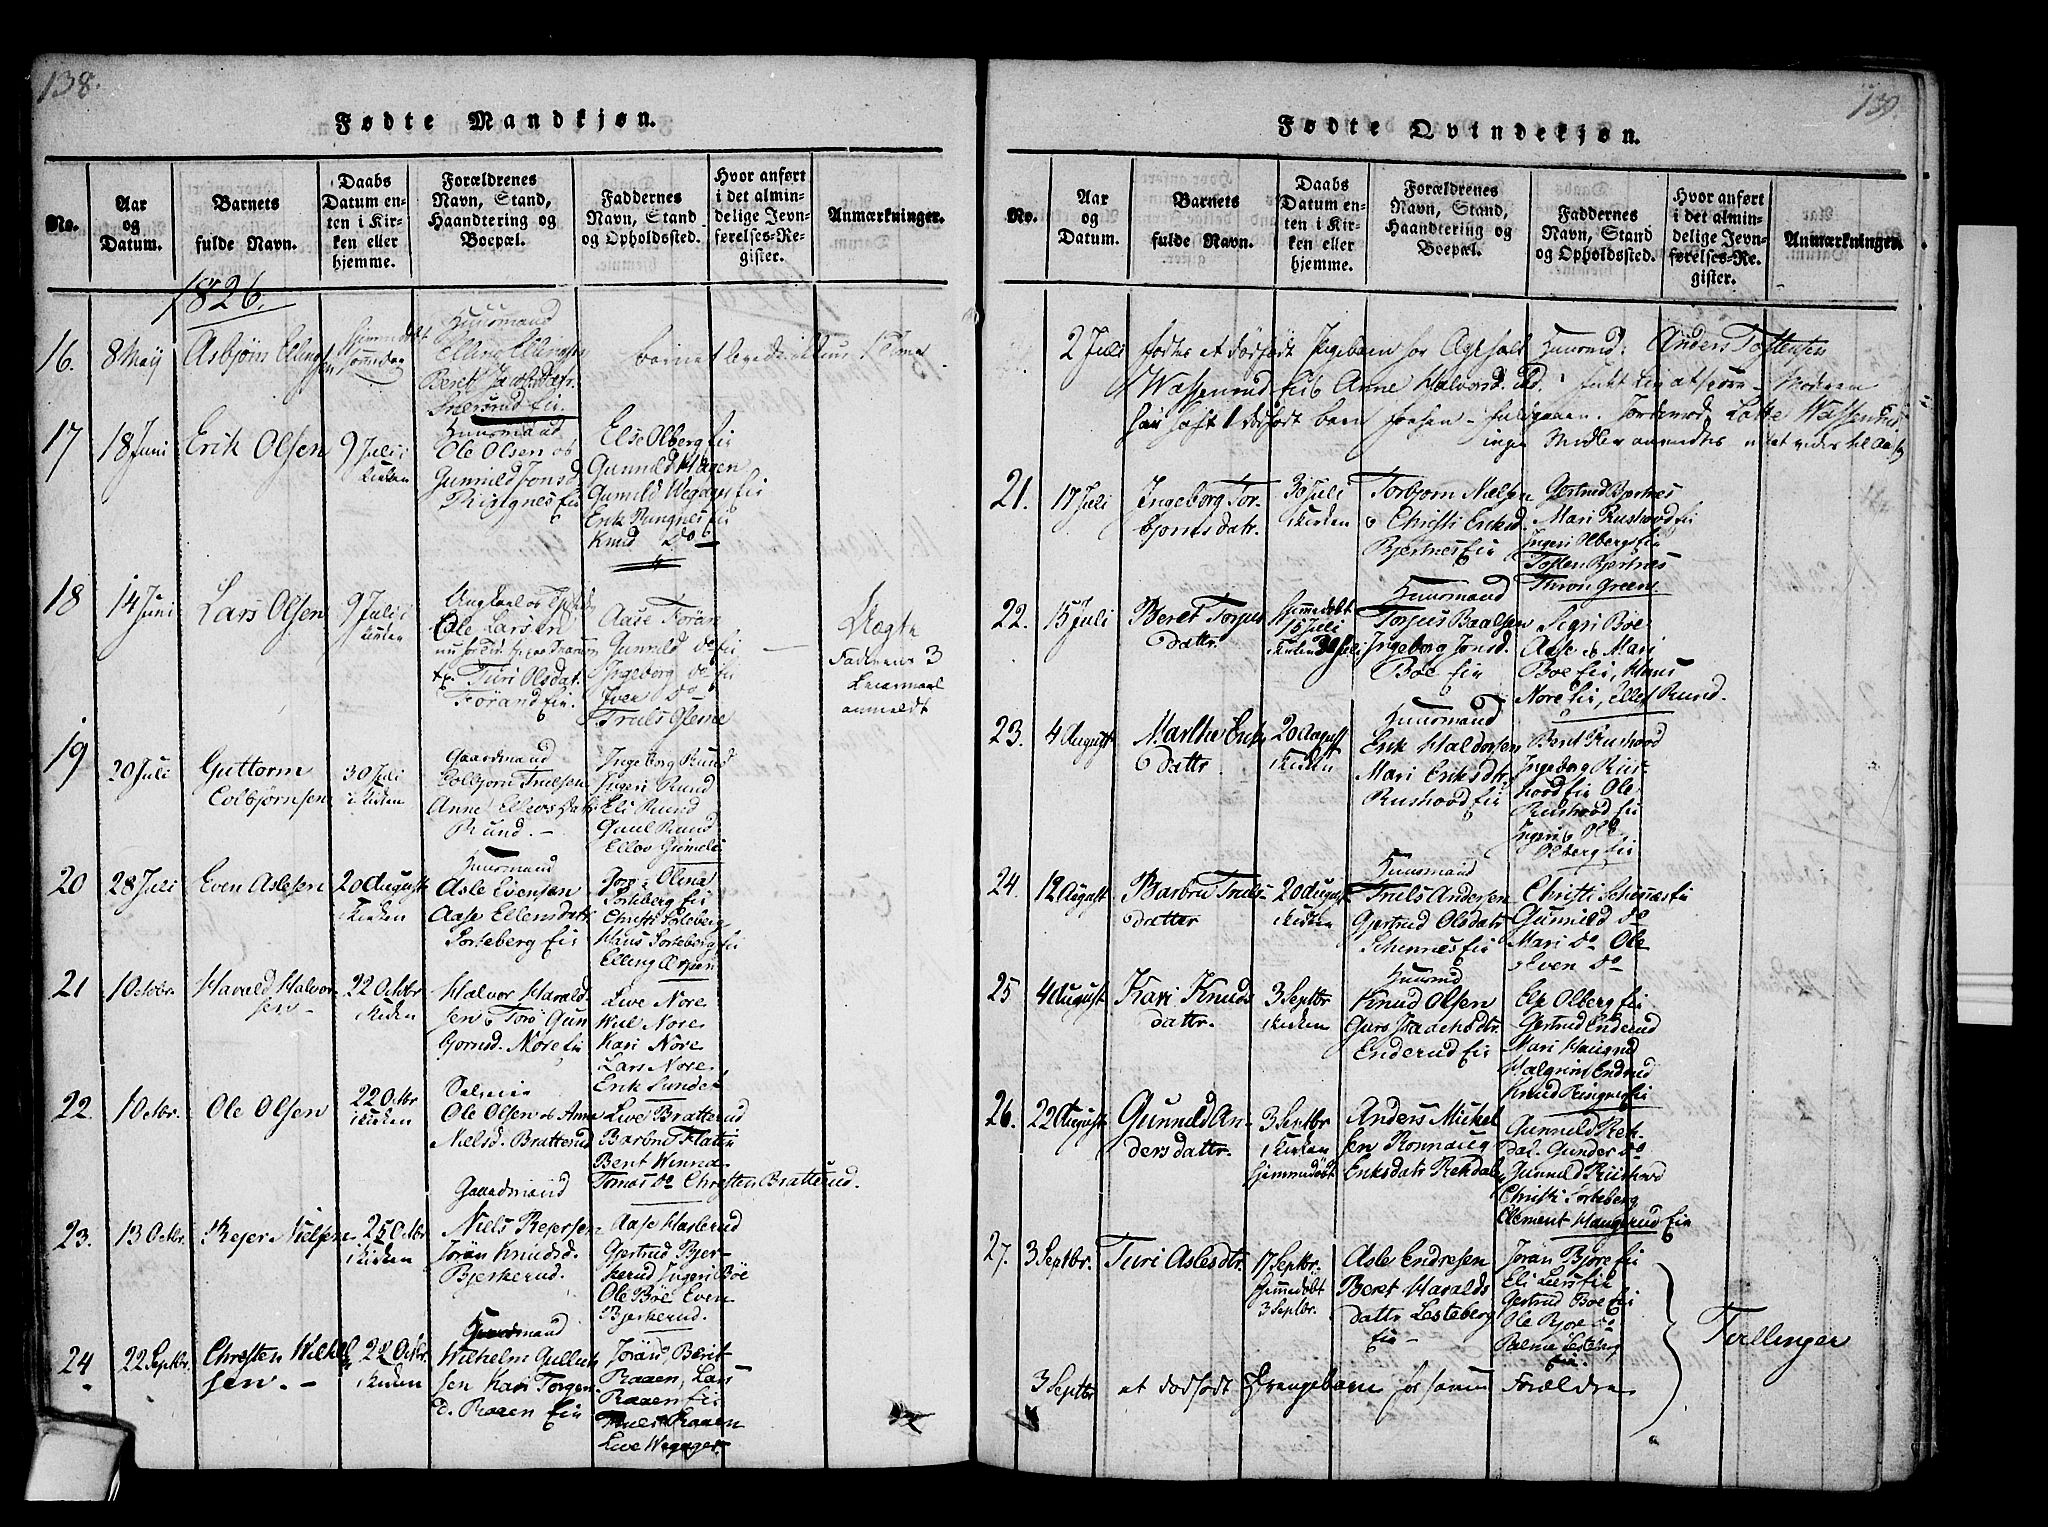 138.
Fødte Mandkjøn.
No.
Aar
og
Datum.
Barnets
fulde Navn.
Daabs
Datum en-
ten i Kir-
ken eller
hjemme.
Forældrenes
Navn, Stand,
Haandtering og
Boepæl.
Faddernes
Navn, Stand
og Opholdssted.
Hvor anført
i det almin-
delige Jevn-
førelses-Re-
gister.
Anmærkninger.
1826.
16.
8 Maÿ
Asbjørn Ellings
sen
hjemmedøbt
Huusmand
Elling Ellingsen
Beret
Snersrud Eie.
barnet levede ikkun 1 Time
17
18 Juni
Erik Olsen
9 Juli i
Kirken
Huusmand
Ole Olsen og
Gunnild Jonsd
Ringnes Eie
Else Olberg Eie
Gunnild Hagen
Gunnild Wegager Eie
Erik Ringnes Eie
Knud Do
18
14 Juni
Lars Olsen
9 Juli i
Kirken
Ungkarl
Ole Larsen
Turi Olsdat.
Førand Eie.
Aase Føran
Gunnild do Eie
Ingeborg do Eie
Iver Do
Truls Gleme
Uægte
Faderens 3
Leiermaal
anmeldt
19
30 Juli
Guttorm
Colbjørnsen
30 Juli
i Kirken
Gaardmand
Colbjørn Trulsen
Anne Ellevsdatr
Ruud. -
Ingeborg Ruud
Ingeri Ruud
Eli Ruud
Paul Ruud
Ellev Gimele
20
28 Juli
Even Aslesen
20 August
i Kirken
Huusmand
Asle Evensen
Aase Ellensdatr
Sorteberg Eie
Olina
Sorteberg Eie
Christi Sorteberg
Hans Sorteberg Eie
Elling
21
1 Octbr.
Harald Halvor
sen -
22 Octbr
i Kirken
Halvor Harald
sen & Torø Gun
bjornsd. Nore Eie
Live Nore
Nore
Kari Nore
Lars Nore
Erik Sunde
22.
1 Octbr.
Ole Olsen
22 Octbr
i Kirken
Selveier
Ole Olsen og Anne
Nielsd. Bratterud
Live Bratterud
Barbru Flatin
Bent Winnæ
Tomas Do Christen Bratterud.
23.
13 Octbr.
Rejer Nielsen
25 Octbr
i Kirken
Gaardmand
Niels Rejersen
Joran Knudsd.
Bjerkerud.
Aase Haslerud
Gjertrud Bjer-
kerud Ingeri Böe
Ole Böe Even
Bjerkerud.
24
22 Septbr.
Christen Wilhel
sen. -
22 Octbr.
i Kirken
Huusmand
Wilhelm Gullik
sen Kari Torgen
d. Raaen Eie
Jøran, Berit
Raaen, Lars
Raaen Eie
Truls Raaen
Live Wegager.
139.
Fødte Qvindekjøn.
No.
Aar
og
Datum.
Barnets
fulde Navn.
Daabs
Datum en-
ten i Kir-
ken eller
hjemme.
Forældrenes
Navn, Stand,
Haandtering og
Boepæl.
Faddernes
Navn, Stand
og Opholdssted.
Hvor anført
i det almin-
delige Jevn-
førelses-Re-
gister.
Anmærkninger.
2 Juli
fødtes et dødfødt Pigebarn for Huusmd: Anders Tostensen
Wæssenrud Eie & Anne Halvorsd. - Moderen
har haft 1 dødfødt barn forhen - Jordemod. Lotte Wæssenrud
ingen Midler anvendtes
21.
17 Juli
Ingeborg Tor-
bjornsdatr.
30 Juli
i Kirken
Torbjorn Nielsen
& Christi Eriksd.
Bjertnes Eie
Gertrud Bjertnes
Mari Rushovd Eie
Ingeri Olberg Eie
Tosten Bjertnes
Thron Green.
22.
15 Juli
Beret Torjus
datr.
Hjemmedøbt
15 Juli
i Kirken 30 Juli
Huusmand
Torjus Baalsen
Ingeborg Jonsd.
Böe Eie
Sigri Böe
Aase & Mari
Boe Eie, Hans
Nore Eie, Ellef Ruud.
23.
4 August
Marthe Eriks
datr
20 August
i Kirken
Huusmand
Erik Haldorsen
Mari Eriksdtr.
Rushovd Eie
Berit Rushovd
Ingeborg Rus-
hovd Eie Ole
Rushovd Eie
Ingeri & Ole
Olberg Eie
24.
12 August
Barbru Truls-
datter
20 August
i Kirken
Huusmand
Truls Andersen
Gjertrud Olsdatr
Schennes Eie
Christi Schennes Eie
Gunnild Do
Mari Do Ole
& Even Do
25
4 August
Kari Knuds
datr.
3 Septbr
i Kirken
Huusmd
Knud Olsen
Guro Isaachsdtr.
Enderud Eie
Else Olberg Eie
Gertrud Enderud
Mari Haugrud
Halgrim Endrud
Knud Ringnes Eie
26.
22 August
Gunnild An-
dersdatr.
3 Septbr
i Kirken
Hjemmedøbt
Anders Mickel
sen Ronnaug
Eriksdatr Rekdal
Gunnild Rek-
dal. Gunder Do
Gunnild Rushovd
Christi Sorteberg
Clement Haugerud Eie
27.
3 Septbr.
Turi Aslesdtr.
17 Septbr.
Hjemmedøbt
3 Septbr.
Asle Endresen
Beret Haralds
datr Lesteberg
Eie -
Jöran Bjore Eie
Eli Leers Eie
Gertrud Boe Eie
Ole Bjoe do
Palme Lesteberg
Eie.
Tvillinger
3 Septbr
et dødfødt Drengebarn for samme Forældre